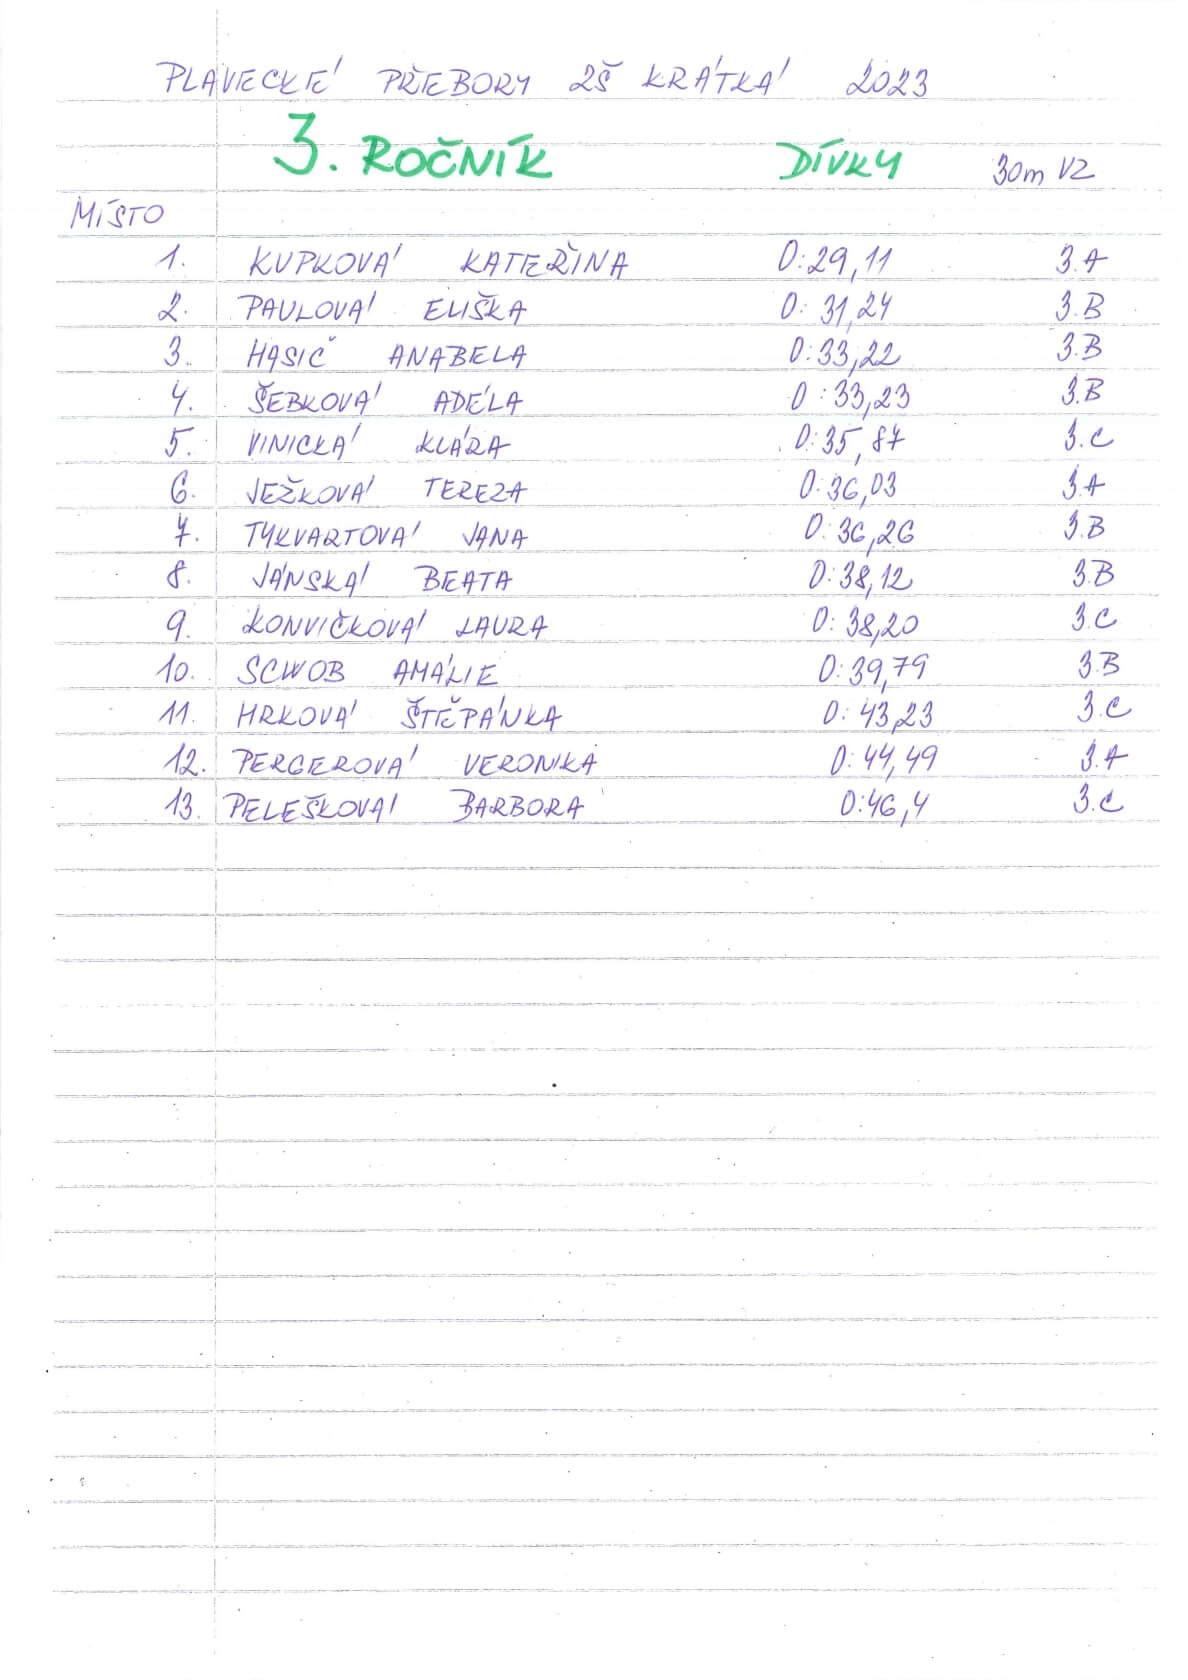 PLAVECKÉ PŘEBORY ZŠ KRÁTKÁ 2023
3. ROČNÍK DÍVKY 30m VZ
MÍSTO
1. KUPKOVÁ KATEŘINA 0:29,11 3.A
2. PAULOVÁ ELIŠKA 0:31,24 3.B
3. HASIČ ANABELA 0:33,22 3.B
4. ŠEBKOVÁ ADÉLA 0:33,23 3.B
5. VINICKÁ KLÁRA 0:35,87 3.C
6. JEŽKOVÁ TEREZA 0:36,03 3.A
7. TYKVARTOVÁ JANA 0:36,26 3.B
8. JÁNSKÁ BEATA 0:38,12 3.B
9. KONVIČKOVÁ LAURA 0:38,20 3.C
10. SCWOB AMÁLIE 0:39,79 3.B
11. HRKOVÁ ŠTĚPÁNKA 0:43,23 3.C
12. PERGEROVÁ VERONIKA 0:44,49 3.A
13. PELEŠKOVÁ BARBORA 0:46,4 3.C